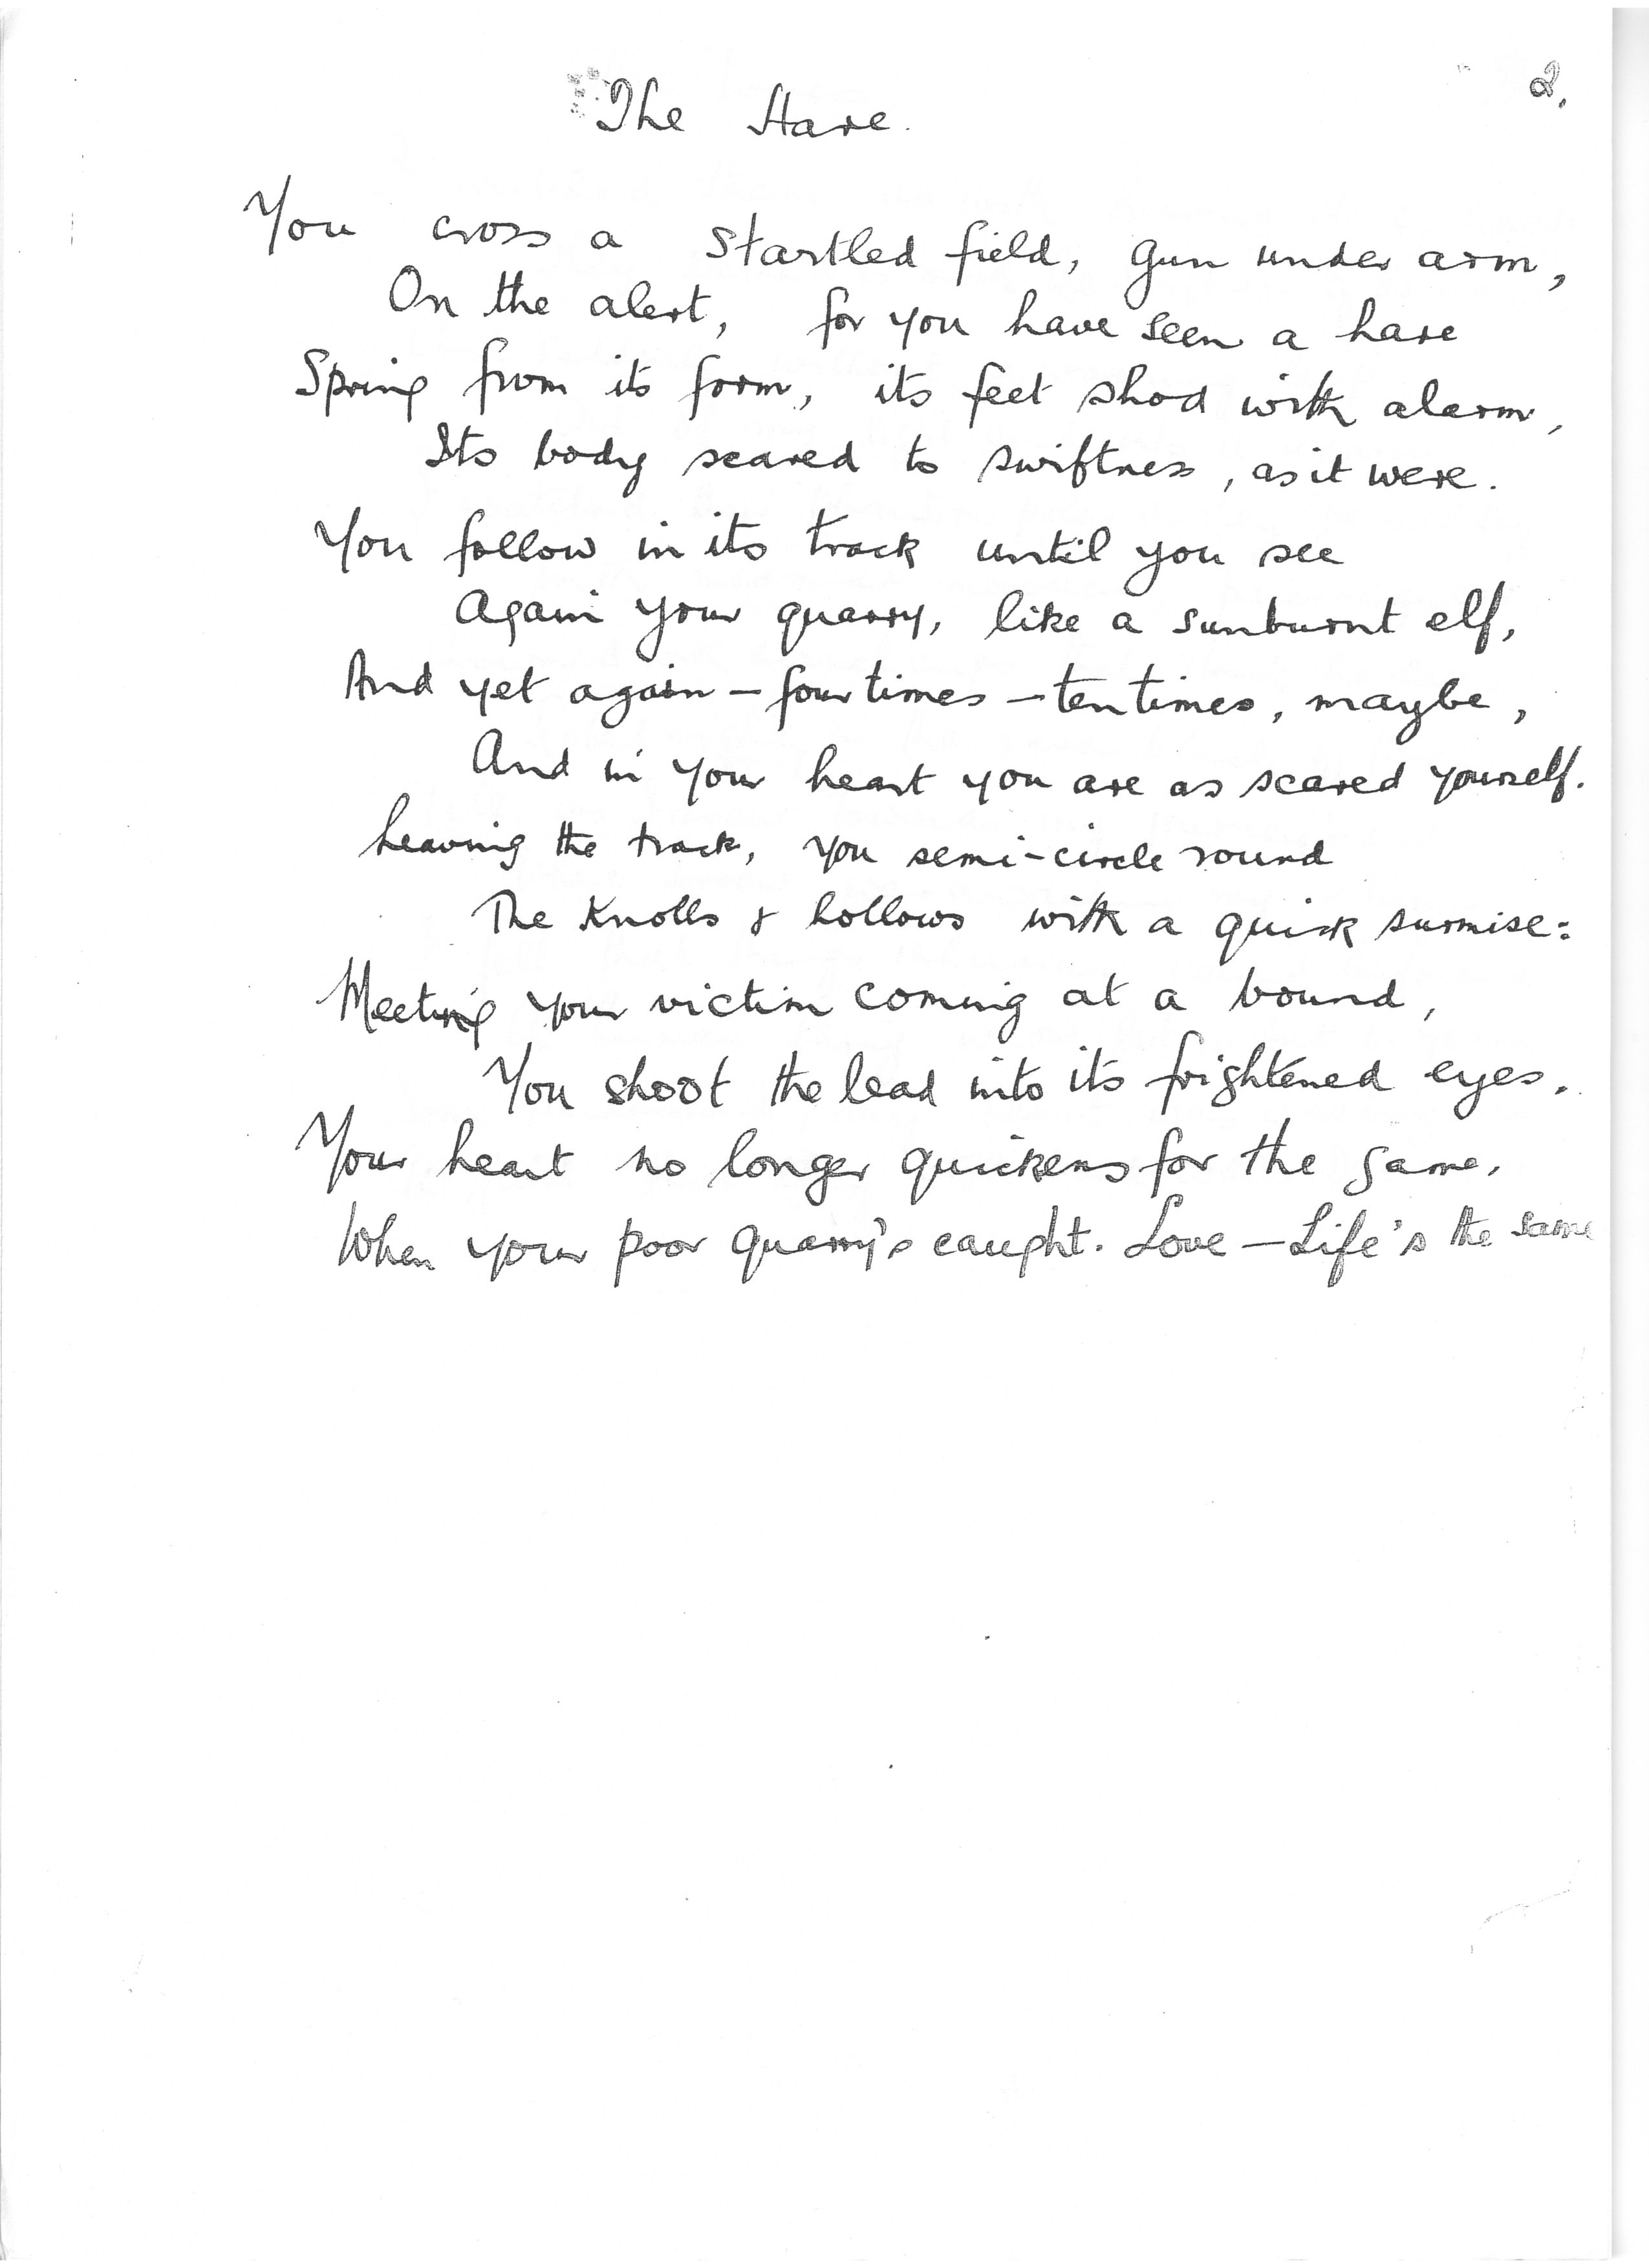 2.
The Hare.
You cross a startled field, gun under arm,
On the alert, for you have seen a hare
Spring from its form, its feet shod with alarm,
Its body scared to swiftness, as it were.
You follow in its track until you see
Again your quarry, like a sunburnt elf,
And yet again – four times – ten times, maybe,
And in your heart you are as scared yourself.
Leaving the track, you semi-circle round
The knolls & hollows with a quick surmise:
Meeting your victim coming at a bound,
You shoot the lead into its frightened eyes.
Your heart no longer quickens for the game,
When your poor quarry's caught. Love – Life's the same